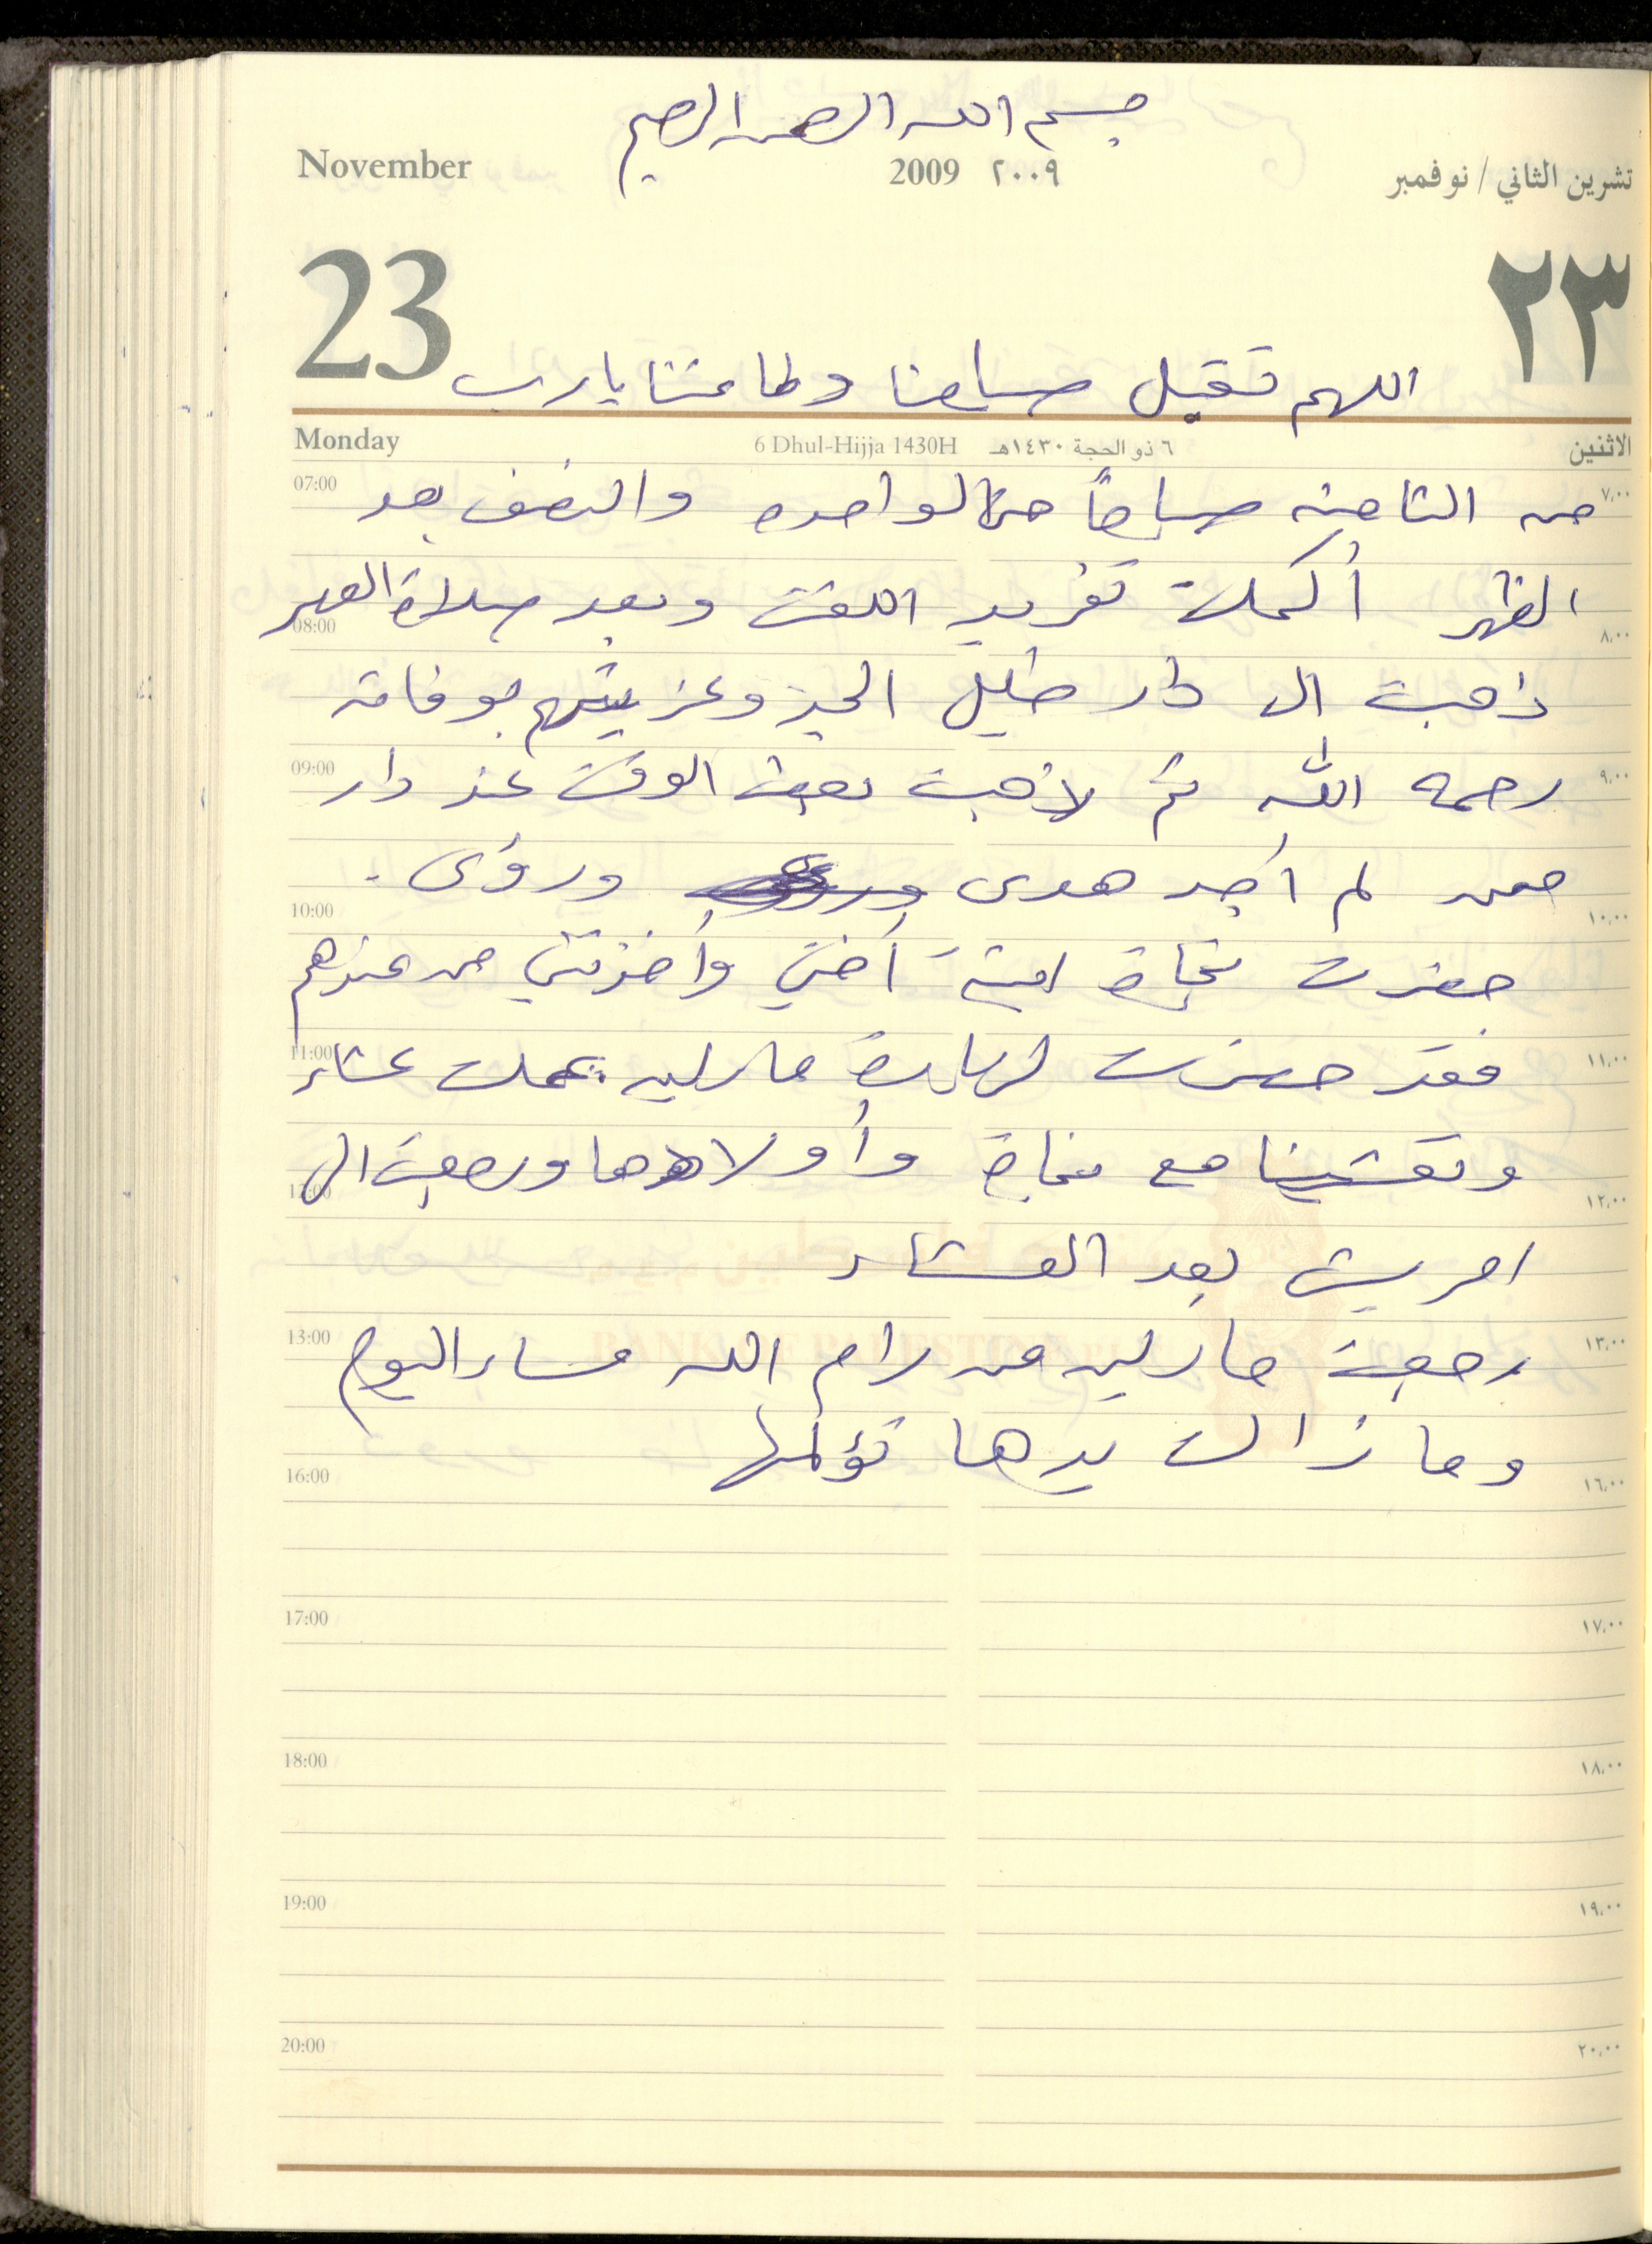 بسم الله الرحمن الرحيم
November 2009 ٢٠٠٩ تشرين الثاني / نوفمبر
23 ٢٣
اللهم تقبل صيامنا وطاعتنا يا رب
Monday 6 Dhul-Hijja 1430H ٦ ذو الحجة ١٤٣٠هـ الاثنين
07:00 ٧,٠٠
من الثامنه صباحاً حتى الواحده والنصف بعد
الظهر أكملت تفريد اللفت وبعد صلاة العصر
08:00 ٨,٠٠
ذهبت الى دار خليل وعزيتهم بوفاته
09:00 ٩,٠٠
رحمه الله ثم لاذهبت بعض الوقت عند دار
معن لم أجد هدى ورؤى .
10:00 ١٠,٠٠
حضرت نجاة ابنة أختي وأخذتني من عندهم
11:00 ١١,٠٠
فقد حضرت لزيارة مارلين عملت عشاء
وتعشينا مع نجاة وأولادها ورجعت الى
12:00 ١٢,٠٠
امريش بعد العشاء
BANK OF PALESTINE
13:00 ١٣,٠٠
رجعت مارلين من رام الله مساء اليوم
وما زالت يدها تؤلمها
16:00 ١٦,٠٠
17:00 ١٧,٠٠
18:00 ١٨,٠٠
19:00 ١٩,٠٠
20:00 ٢٠,٠٠